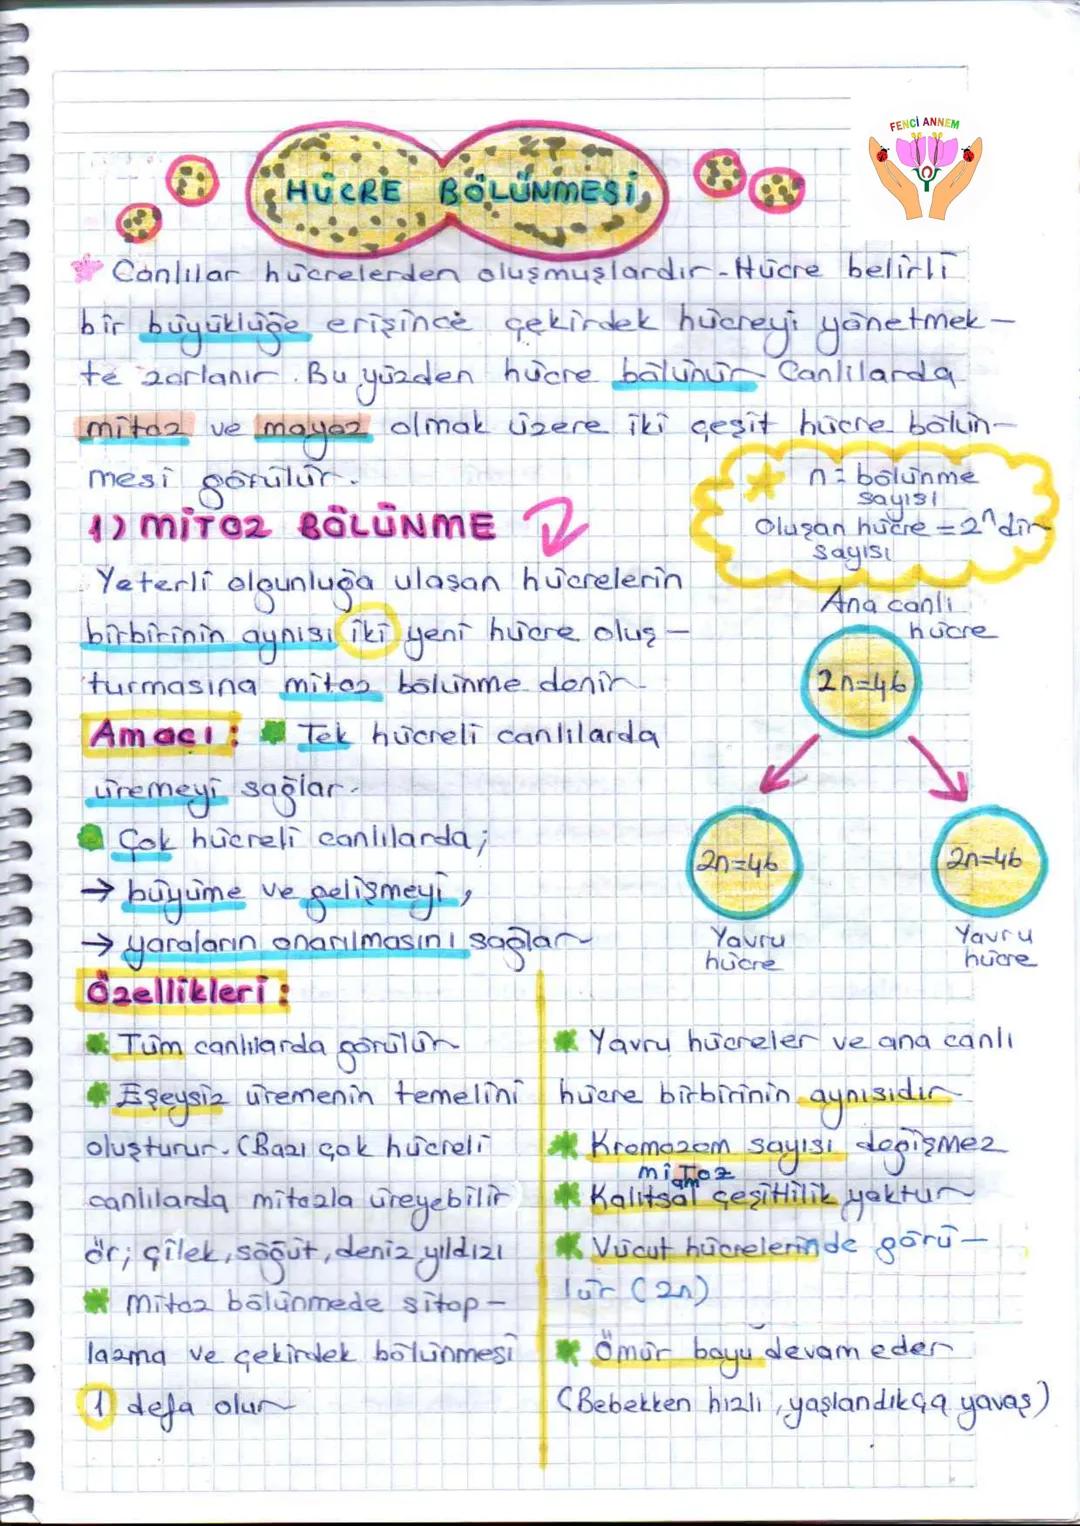 FENCİ ANNEM
HÜCRE BÖLÜNMESİ
Canlılar hücrelerden oluşmuşlardır. Hücre belirli
bir büyüklüğe erişince çekirdek hücreyi yönetmek-
te zorlanır. Bu yüzden hücre bölünür. Canlılarda
mitoz ve mayoz olmak üzere iki çeşit hücre bölün-
mesi görülür.
n = bölünme
sayısı
Oluşan hücre = 2ⁿ dir
sayısı
1) MİTOZ BÖLÜNME
Yeterli olgunluğa ulaşan hücrelerin
birbirinin aynısı iki yeni hücre oluş-
turmasına mitoz bölünme denir.
Ana canlı
hücre
2n=46
Amacı: Tek hücreli canlılarda
üremeyi sağlar.
Çok hücreli canlılarda;
→ büyüme ve gelişmeyi,
→ yaraların onarılmasını sağlar
2n=46
2n=46
Yavru
hücre
Yavru
hücre
Özellikleri:
Tüm canlılarda görülür
Eşeysiz üremenin temelini
oluşturur. (Bazı çok hücreli
canlılarda mitozla üreyebilir
ör; çilek, söğüt, deniz yıldızı
Mitoz bölünmede sitop-
lazma ve çekirdek bölünmesi
1 defa olur
Yavru hücreler ve ana canlı
hücre birbirinin aynısıdır
Kromozom sayısı değişmez
mitoz
Kalıtsal çeşitlilik yoktur
Vücut hücrelerinde görü-
lür (2n)
Ömür boyu devam eder
(Bebekken hızlı, yaşlandıkça yavaş)